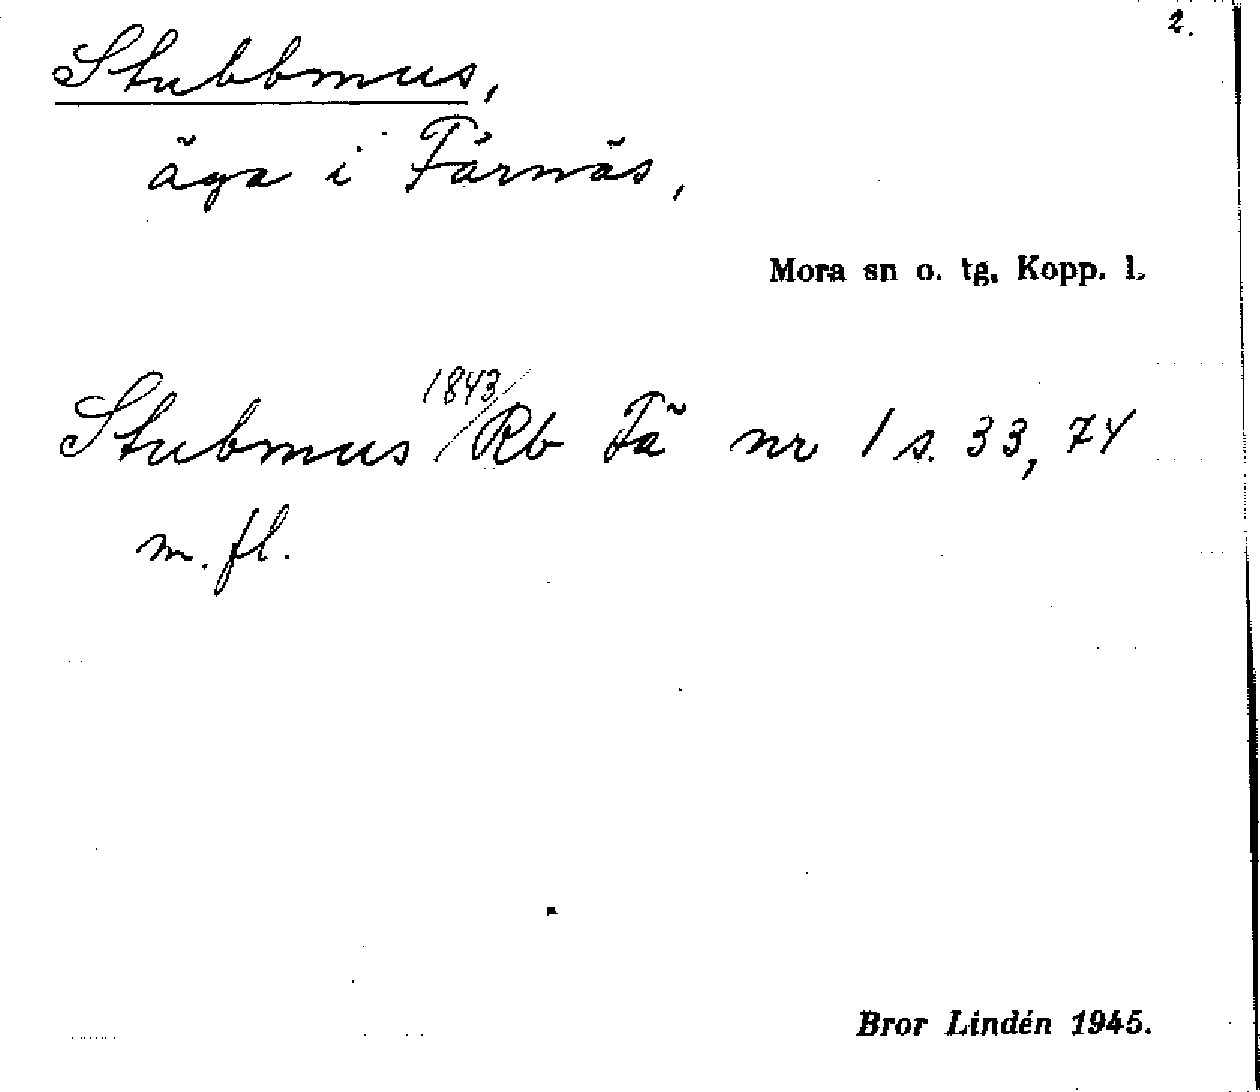 2.
Stubbmus,
äga i Färnäs,
Mora sn o. tg. Kopp. l.
Stubmus 1843/Rb Fä nr 1 s. 33, 74
m. fl.
Bror Lindén 1945.